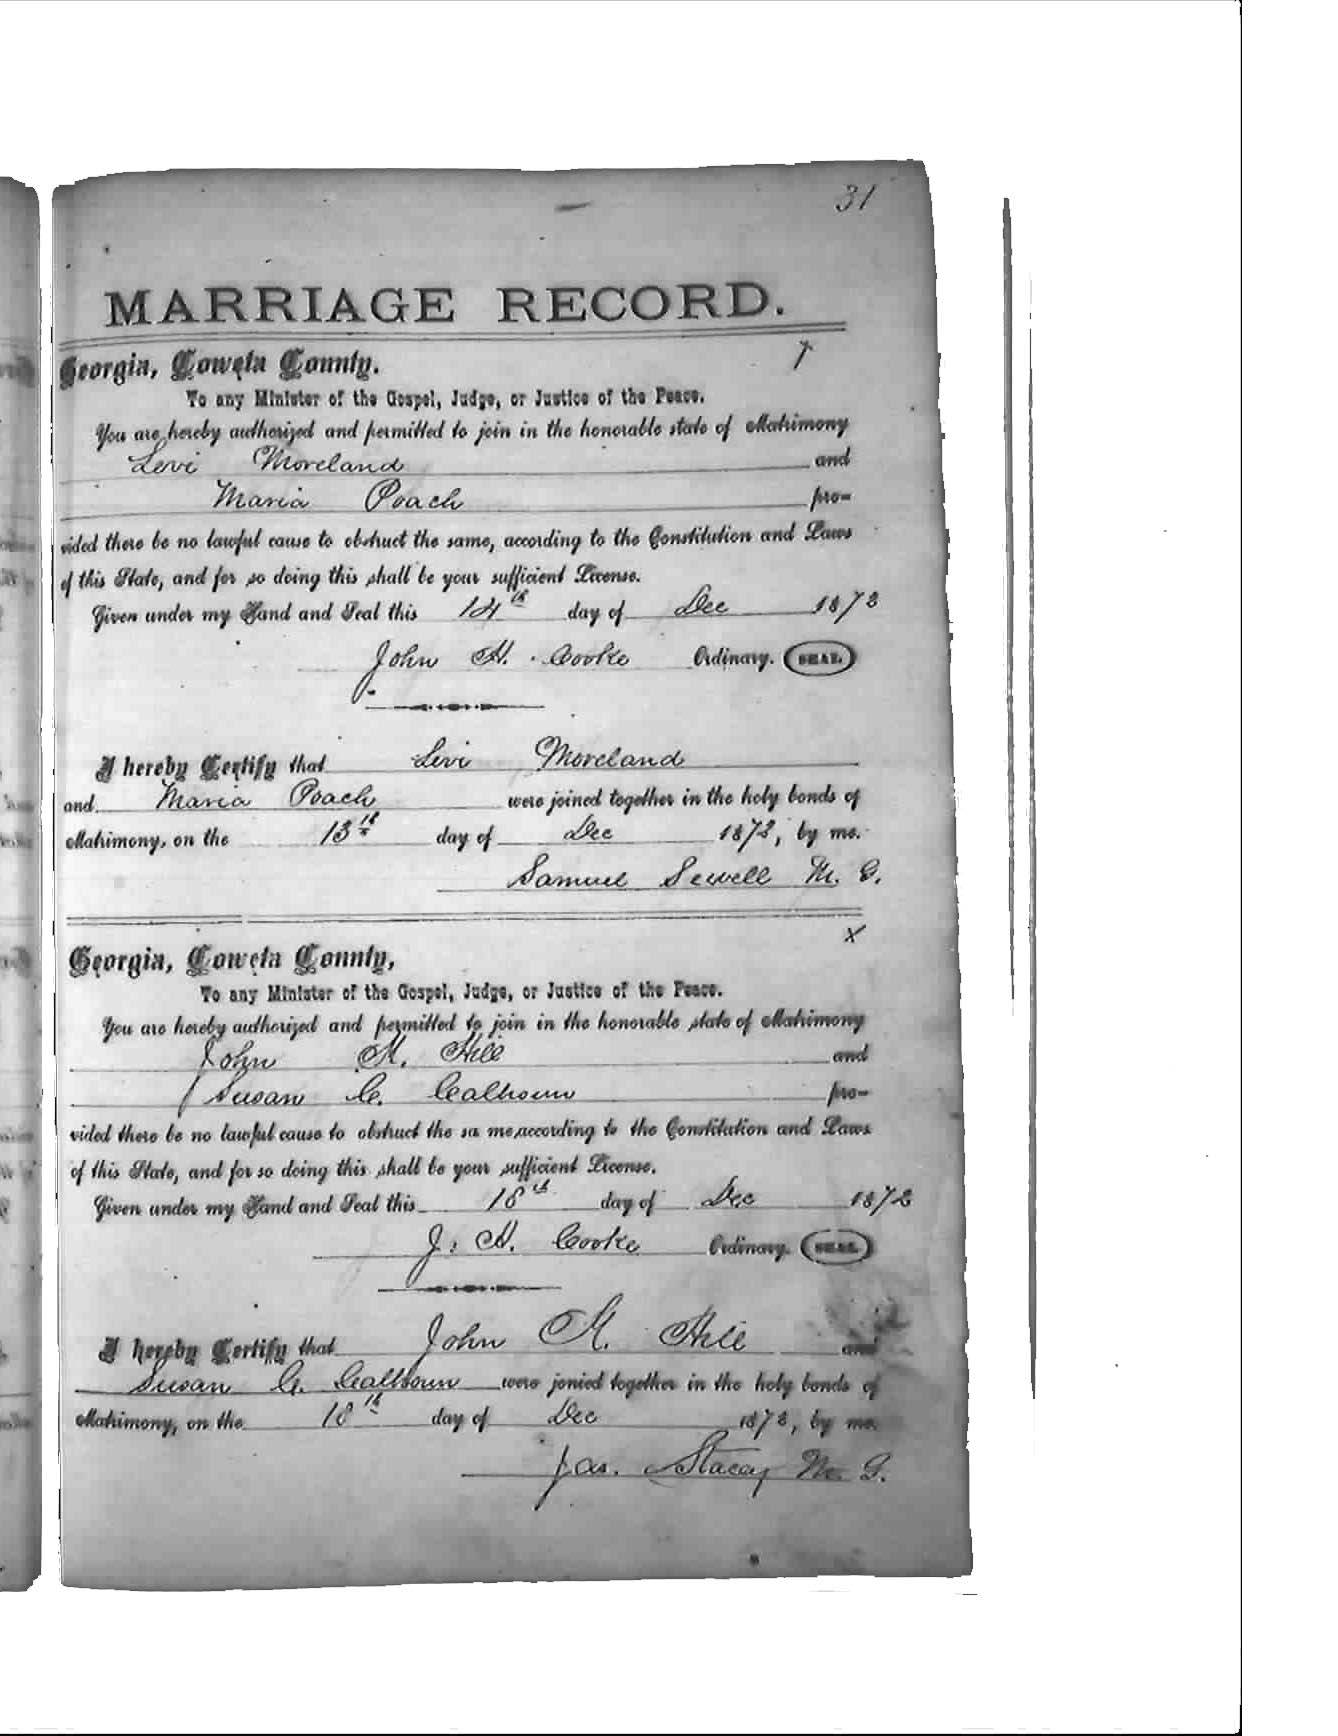 31
MARRIAGE RECORD.
Georgia, Coweta County.
To any Minister of the Gospel, Judge, or Justice of the Peace.
You are hereby authorized and permitted to join in the honorable state of Matrimony
Levi Moreland and
Maria Poach pro-
vided there be no lawful cause to obstruct the same, according to the Constitution and Laws
of this State, and for so doing this shall be your sufficient License.
Given under my Hand and Seal this 14th day of Dec 1872
John H. Cooke Ordinary. SEAL.
I hereby Certify that Levi Moreland
and Maria Poach were joined together in the holy bonds of
Matrimony, on the 15th day of Dec 1872, by me.
Samuel Sewell M. G.
x
Georgia, Coweta County,
To any Minister of the Gospel, Judge, or Justice of the Peace.
You are hereby authorized and permitted to join in the honorable state of Matrimony
John M. Hill and
Susan C. Calhoun pro-
vided there be no lawful cause to obstruct the sa me, according to the Constitution and Laws
of this State, and for so doing this shall be your sufficient License.
Given under my Hand and Seal this 18th day of Dec 1872
J. H. Cooke Ordinary. SEAL.
I hereby Certify that John M. Hill and
Susan C. Calhoun were jonied together in the holy bonds of
Matrimony, on the 18th day of Dec 1872, by me.
Jas. Stacey M. G.